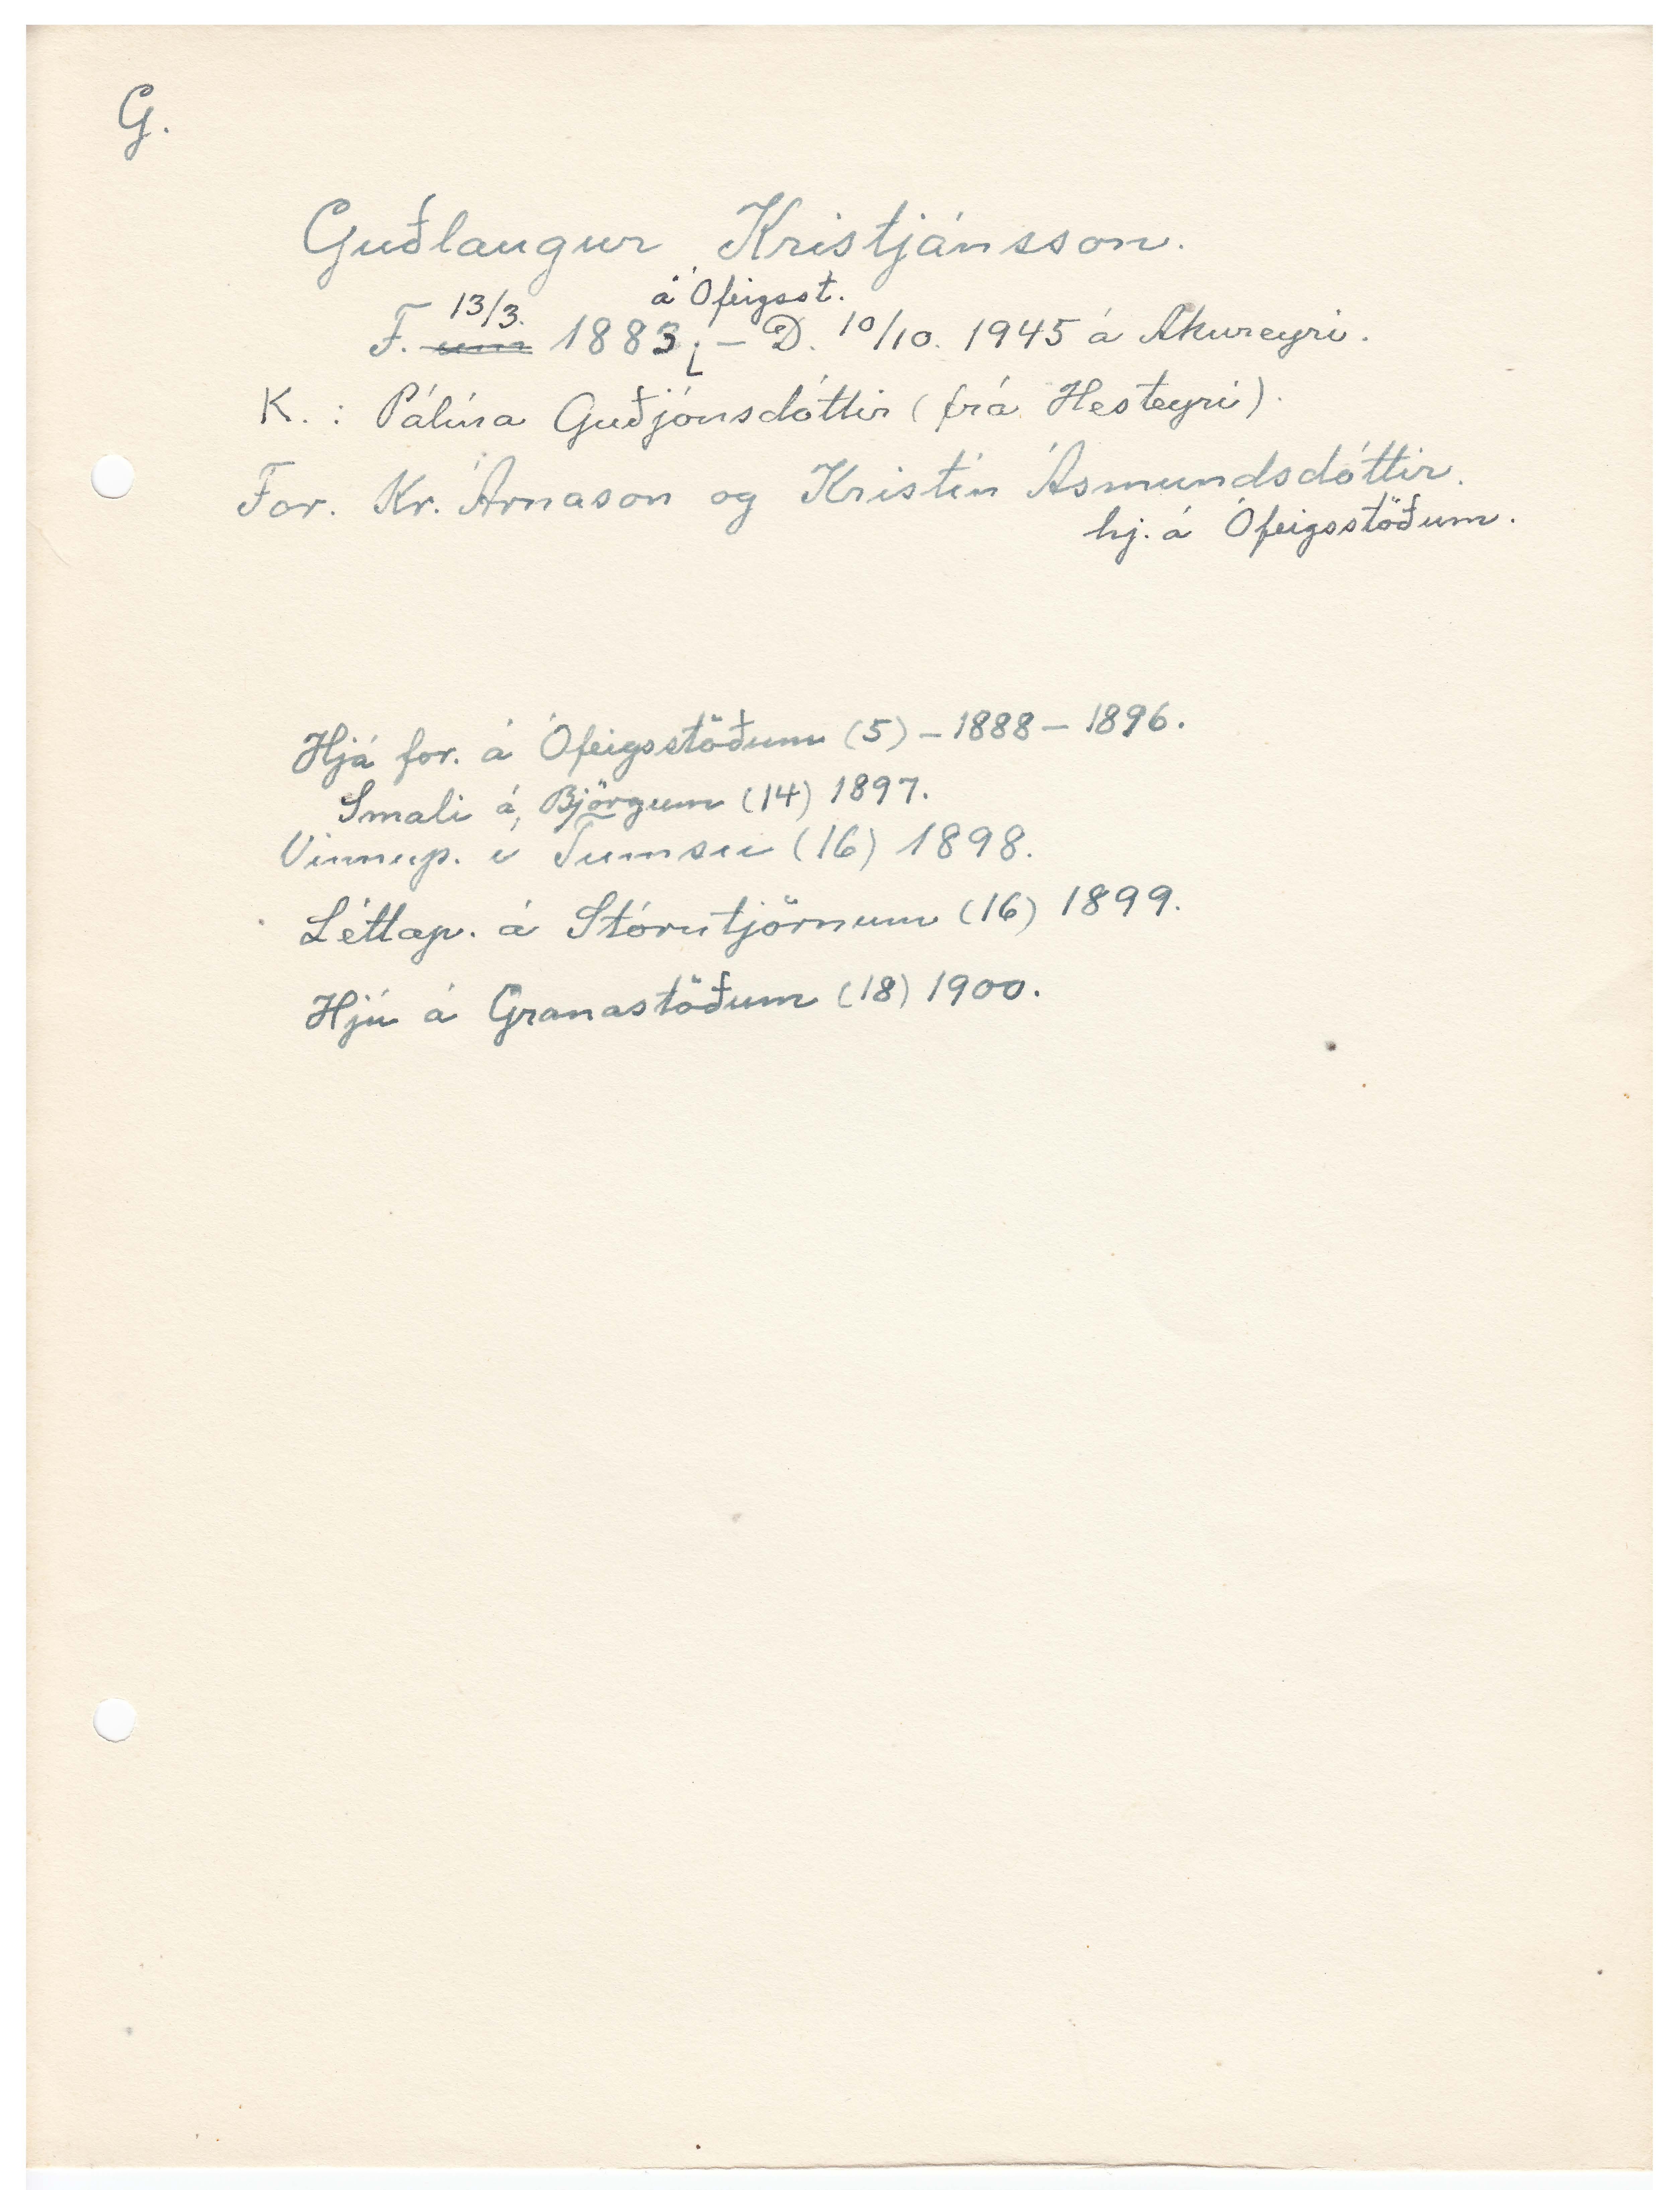 G.
Guðlaugur Kristjánsson.
á Ófeigsst.
13/3.
F. um 1883, – D. 10/10. 1945 á Akureyri.
K. : Pálína Guðjónsdóttir (frá Hesteyri).
For. Kr. Árnason og Kristín Ásmundsdóttir.
hj. á Ófeigsstöðum.
Hjá for. á Ófeigsstöðum (5) – 1888 – 1896.
Smali á Björgum (14) 1897.
Vinnup. í Tumsu (16) 1898.
Léttap. á Stórutjörnum (16) 1899.
Hjú á Granastöðum (18) 1900.